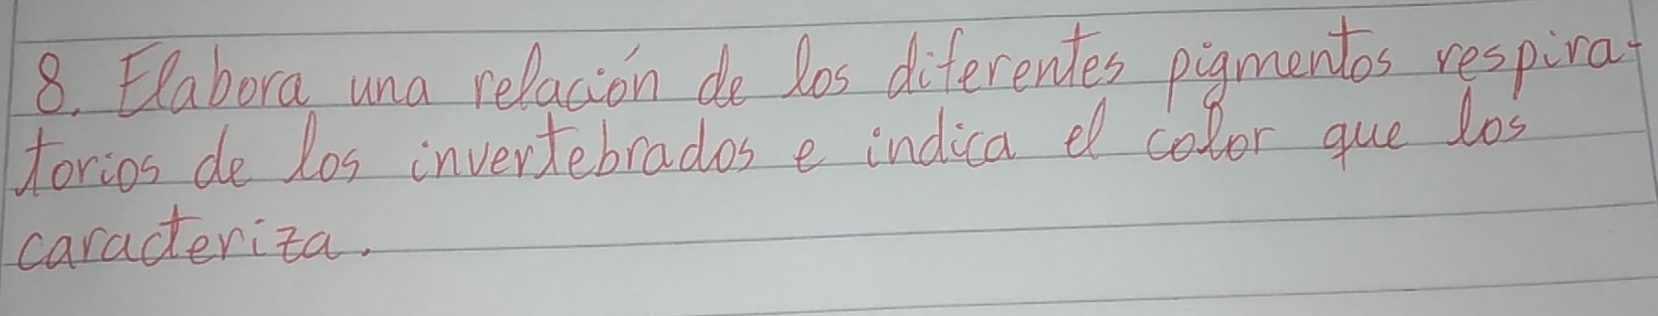 8. Elabora una relación de los diferentes pigmentos respira-
torios de los invertebrados e indica el color que los
caracteriza.